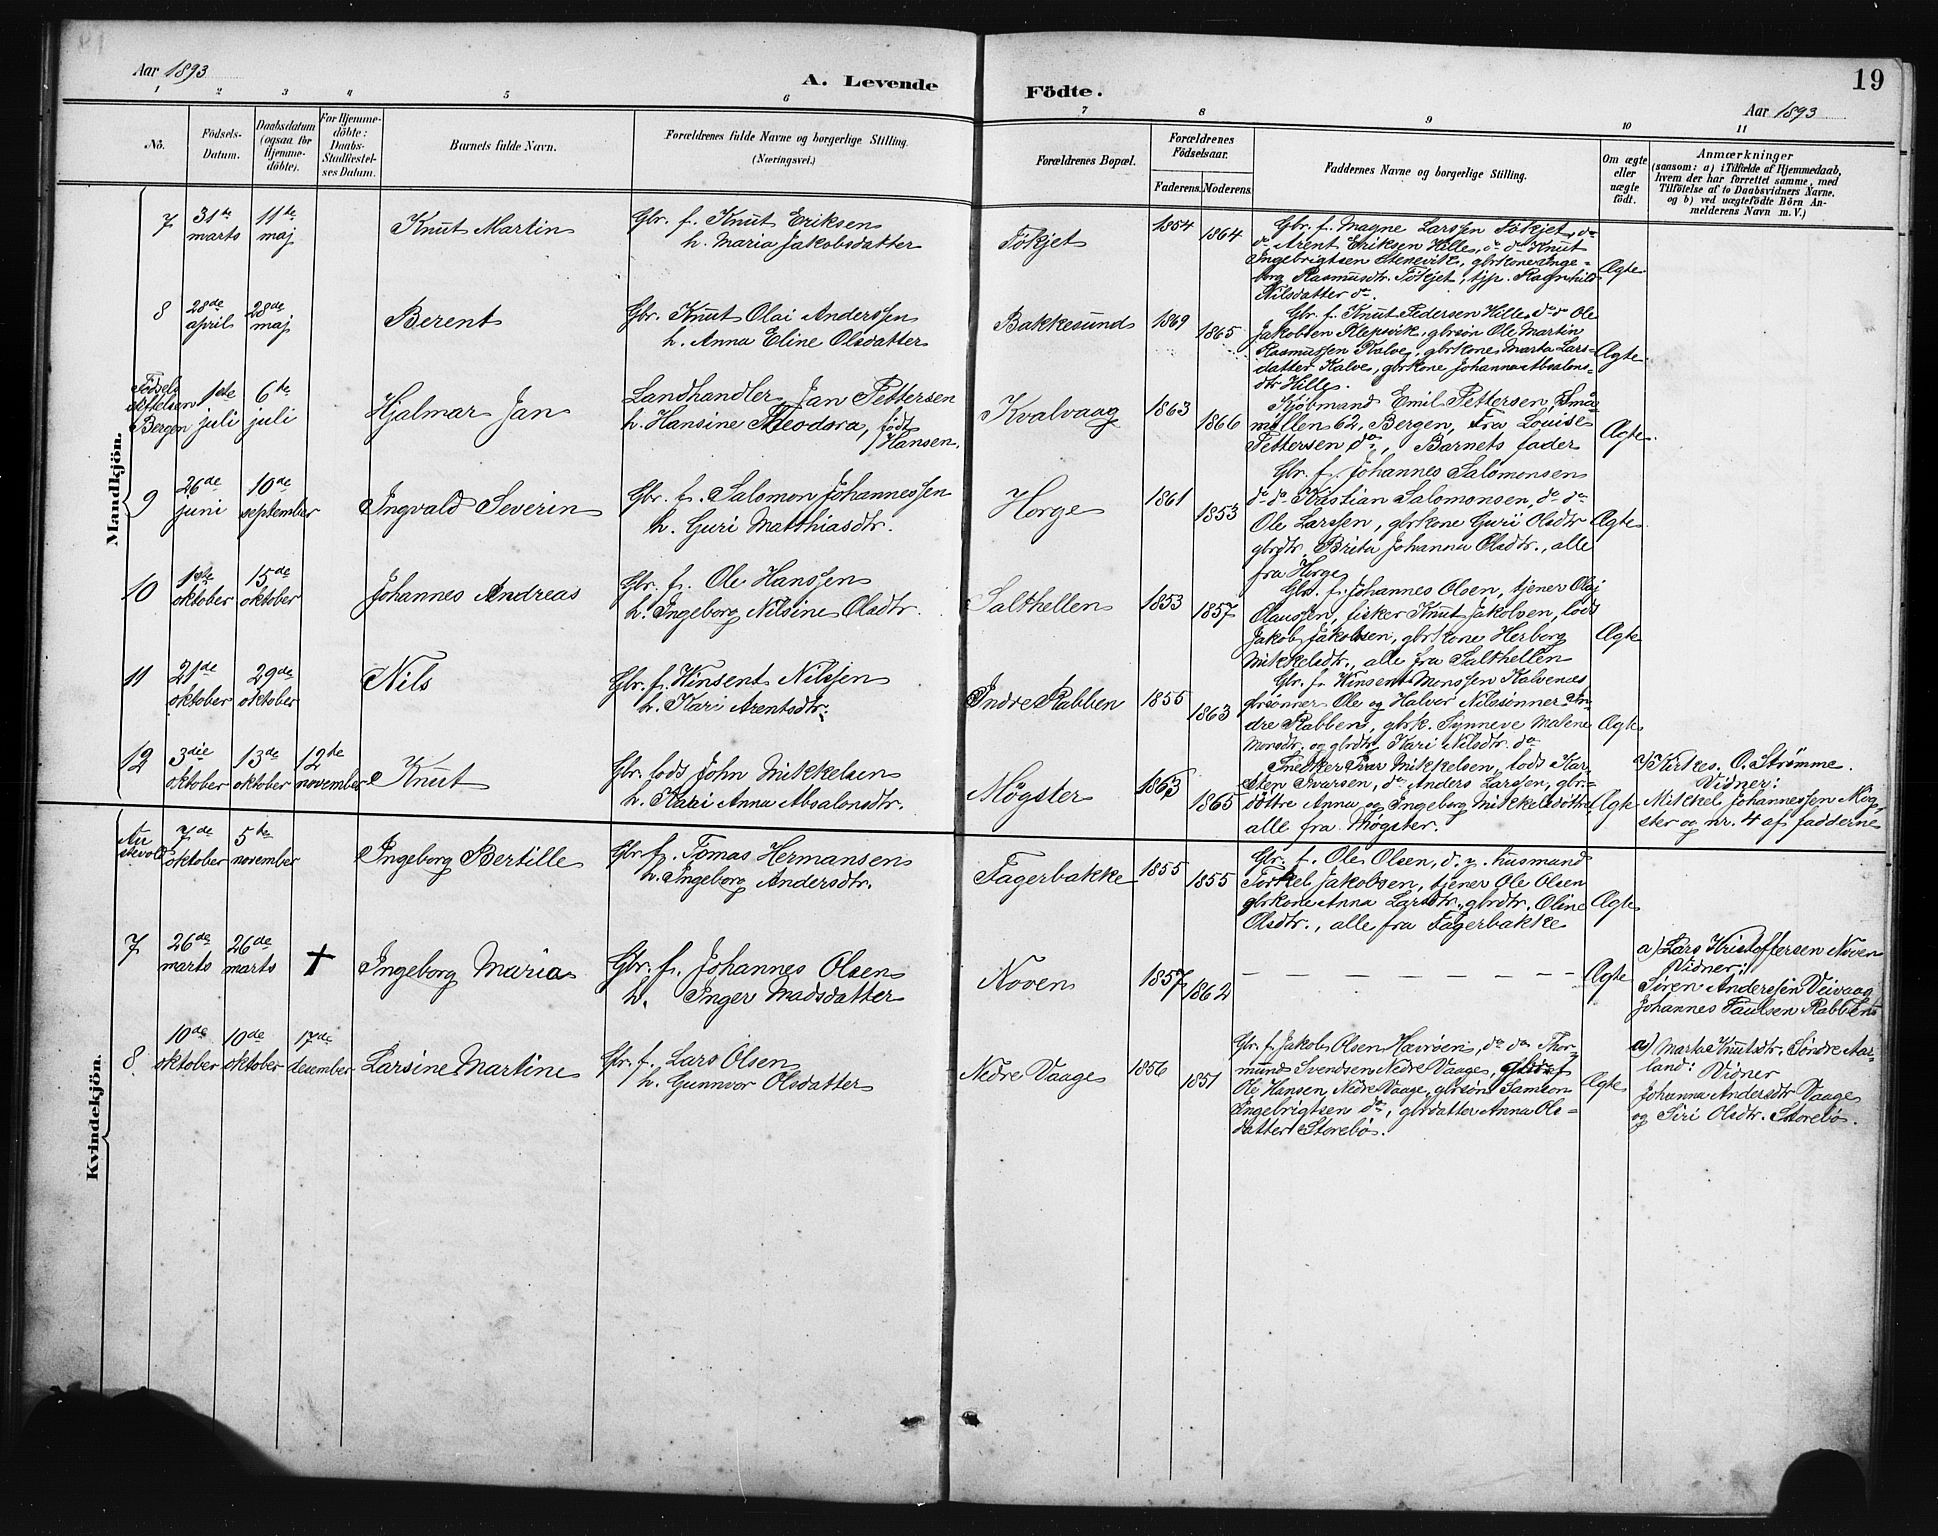 Aar 1893
A. Levende Födte.
19
Aar 1893
1 2 3 4 5 6 7 8 9 10 11
No.
Födsels-
Datum.
Daabsdatum
(ogsaa for
Hjemme-
döbte).
For Hjemme-
döbte:
Daabs-
Stadfæstel-
ses Datum.
Barnets fulde Navn.
Forældrenes fulde Navne og borgerlige Stilling.
(Næringsvei.)
Forældrenes Bopæl.
Forældrenes
Födselsaar.
Faderens. Moderens.
Faddernes Navne og borgerlige Stilling.
Om ægte
eller
uægte
födt.
Anmærkninger
(saasom: a) i Tilfælde af Hjemmedaab,
hvem der har forrettet samme, med
Tilföielse af to Daabsvidners Navne,
og b) ved uægtefödte Börn An-
melderens Navn m. V.)
Mandkjön.
7
31te
marts
11te
maj
Knut Martin
Gbr. f. Knut Eriksen
h. Maria Jakobsdatter
Tökjet
1854
1864
Gbr. f. Magne Larssen Tökjet, do
do Arent Eriksen Hille, do do Knut
Ingebrigtsen Stenevik, gbrkone Inge-
borg Rasmusdtr. Tökjet, tjp. Ragnhild
Nilsdatter do.
Ægte
8
28de
april
28de
maj
Berent
Gbr. Knut Olai Anderssen
h. Anna Eline Olsdatter
Bakkesund
1869
1865
Gbr. f. Knut Pedersen Hille do do Ole
Jakobsen Klepsvik, gbrsön Ole Martin
Rasmussen Kalve, gbrkone Marta Lars-
datter Kalve, gbrkone Johanna Absalons-
dtr Hille.
Ægte
Födsels
Bergen
1ste
juli
6te
juli
Hjalmar Jan
Landhandler Jan Pettersen
h. Hansine Theodora, født
Hansen.
Kvalvaag
1863
1866
Kjöbmand Emil Pettersen, Små-
möllen 62, Bergen, Fra Louise
Pettersen do, Barnets fader
Ægte
9
26de
juni
10de
september
Ingvald Severin
Gbr. f. Salomon Johannessen
h. Guri Matthiasdtr.
Horge
1861
1853
Gbr. f. Johannes Salomonsen
do do Kristian Salomonsen, do do
Ole Larssen, gbrkone Guri Olsdtr
gbrdtr. Brita Johanna Olsdtr., alle
fra Horge
Ægte
10
1ste
oktober
15de
oktober
Johannes Andreas
Gbr. f. Ole Hanssen
h. Ingeborg Nilsine Olsdtr.
Salthellen
1853
1857
Gbr. f. Johannes Olsen, tjener Olai
Olaussen, fisker Knut Jakobsen, lods
Jakob Jakobsen, gbrkone Herborg
Mikkelsdtr., alle fra Salthellen
Ægte
11
21de
oktober
29de
oktober
Nils
Gbr. f. Vinsent Nilssen
h. Kari Arentsdtr.
Indre Rabben
1855
1863
Gbr. f. Vinsent Monssen Kalvenes
gbrsönner Ole og Halvor Nilssönner In-
dre Rabben, gbrk. Synneve Malene
Monsdtr. og gbrdtr. Kari Nilsdtr. do
Ægte
12
3die
oktober
13de
oktober
12de
november
Knut
Gbr. lods John Mikkelsen
h. Kari Anna Absalonsdtr.
Møgster
1863
1865
Snedker Mikkelsen, lods Kar-
sten Ivarsen, do Anders Larssen, gbr-
döttre Anna og Ingeborg Mikkelsdöttre
alle fra Møgster.
Ægte
Kirkes. O. Strømme.
Vidner:
Mikkel Johannessen Møg-
ster og nr. 4 af fadderne
Kvindekjön.
Au
stevold
7de
oktober
5te
november
Ingeborg Bertille
Gbr. f. Tomas Hermansen
h. Ingeborg Andersdtr.
Fagerbakke
1855
1855
Gbr. f. Ole Olsen, d. y. husmand
Torkel Jakobsen, tjener Ole Olsen
gbrkone Anna Larsdtr, gbrdtr. Oline
Olsdtr., alle fra Fagerbakke
Ægte
7
26de
marts
26de
marts
†
Ingeborg Maria
Gbr. f. Johannes Olsen
h. Inger Madsdatter
Noven
1857
1862
— — — — — — — —
Ægte
a) Lars Kristoffersen Noven
Vidner:
Søren Anderssen Veivaag
Johannes Paulsen Rabben
8
10de
oktober
10de
oktober
17de
desember
Larsine Martine
Gbr. f. Lars Olsen
h. Gunnvor Olsdatter
Nedre Vaage
1856
1851
Gbr. f. Jakob Olsen Hævröen, do do Thor-
mund Svendsen Nedre Vaage,
Ole Hansen Nedre Vaage, gbrsön Samson
Ingebrigtsen do, gbrdatter Anna Ols-
datter Storebö.
Ægte
a) Marta Knutsdtr. Søndre Aar-
land: Vidner
Johanna Andersdtr Vaage
og Siri Olsdtr. Storebö.